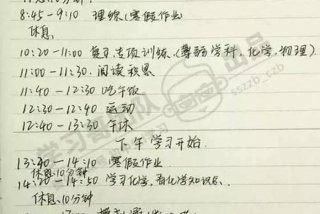 8:45-9:10 理练(寒假作业
休息.
10:20-11:00 复习,专项训练.(薄弱学科,化学,物理)
11:00-11:30.阅读积累
11:40-12:30吃午饭
12:30-12:40 运动
12:40-13:30 午休
下午学习开始
13:40-14:10 寒假作业
休息10分钟
14:20-14:50 学习化学,看化学知识点.
休息.10分钟
学习哥团队出品
sszzb_xzb